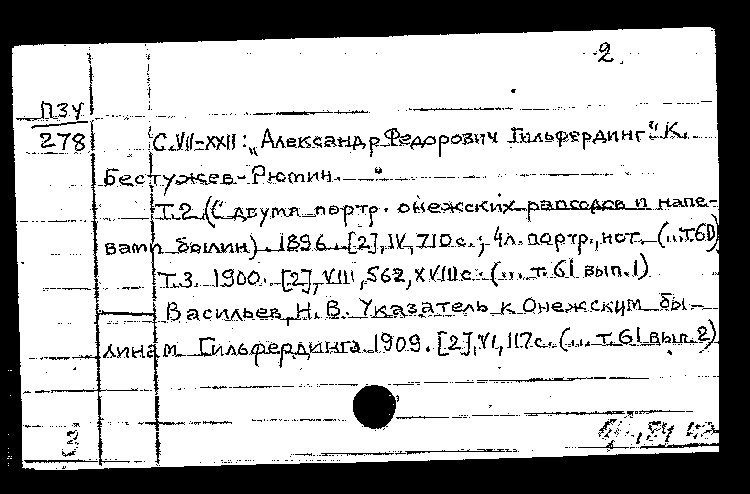 2
ПЗУ
278
С. VII-XXII: „Александр Федорович Гильфердинг" К.
Бестужев-Рюмин.
Т.2 (С двумя портр. онежских рапсодов и напе-
вами былин). 1896. [2], IV, 710 с.; 4 л. портр., нот. (...т.60)
Т.3. 1900. [2], VIII, 562, XVIII с. (... т. 61 вып.1)
Васильев, Н. В. Указатель к Онежским бы-
линам Гильфердинга 1909. [2], VI, 117 с. (... т. 61 вып. 2)